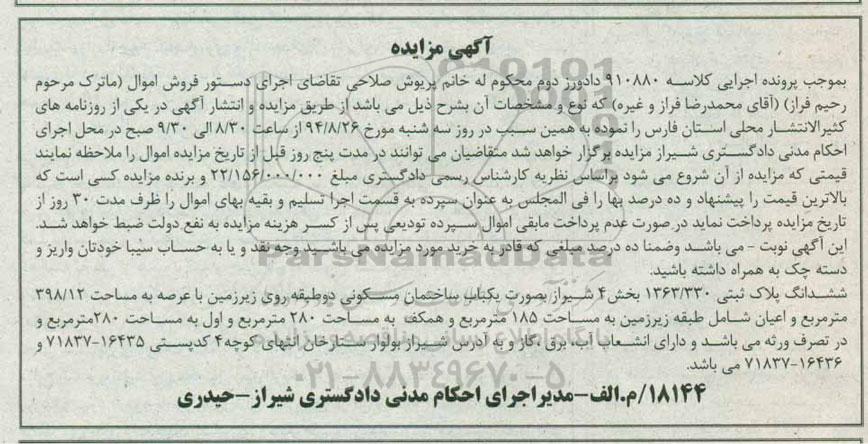 آگهی مزایده
بموجب پرونده اجرایی کلاسه ۹۱۰۸۸۰ دادورز دوم محکوم له خانم پریوش صلاحی تقاضای اجرای دستور فروش اموال (ماترک مرحوم
رحیم فراز) (آقای محمدرضا فراز و غیره) که نوع و مشخصات آن بشرح ذیل می باشد از طریق مزایده و انتشار آگهی در یکی از روزنامه های
کثیرالانتشار محلی استان فارس را نموده به همین سبب در روز سه شنبه مورخ ۹۴/۸/۲۶ از ساعت ۸/۳۰ الی ۹/۳۰ صبح در محل اجرای
احکام مدنی دادگستری شیراز مزایده برگزار خواهد شد متقاضیان می توانند در مدت پنج روز قبل از تاریخ مزایده اموال را ملاحظه نمایند
قیمتی که مزایده از آن شروع می شود براساس نظریه کارشناس رسمی دادگستری مبلغ ۲۲/۱۵۶/۰۰۰/۰۰۰ و برنده مزایده کسی است که
بالاترین قیمت را پیشنهاد و ده درصد بها را فی المجلس به عنوان سپرده به قسمت اجرا تسلیم و بقیه بهای اموال را ظرف مدت ۳۰ روز از
تاریخ مزایده پرداخت نماید در صورت عدم پرداخت مابقی اموال سپرده تودیعی پس از کسر هزینه مزایده به نفع دولت ضبط خواهد شد.
این آگهی نوبت - می باشد وضمنا ده درصد مبلغی که قادر به خرید مورد مزایده می باشید وجه نقد و یا به حساب سیبا خودتان واریز و
دسته چک به همراه داشته باشید.
ششدانگ پلاک ثبتی ۱۳۶۳/۳۳۰ بخش ۴ شیراز بصورت یکباب ساختمان مسکونی دوطبقه روی زیرزمین با عرصه به مساحت ۳۹۸/۱۲
مترمربع و اعیان شامل طبقه زیرزمین به مساحت ۱۸۵ مترمربع و همکف به مساحت ۲۸۰ مترمربع و اول به مساحت ۲۸۰مترمربع و
در تصرف ورثه می باشد و دارای انشعاب آب، برق، گاز و به آدرس شیراز بولوار ستارخان انتهای کوچه۴ کدپستی ۱۶۴۳۵-۷۱۸۳۷ و
۱۶۴۳۶-۷۱۸۳۷ می باشد.
۱۸۱۴۴/م.الف-مدیراجرای احکام مدنی دادگستری شیراز-حیدری
ParsNamadData
۰۲۱-۸۸۳۴۹۶۷۰-۵